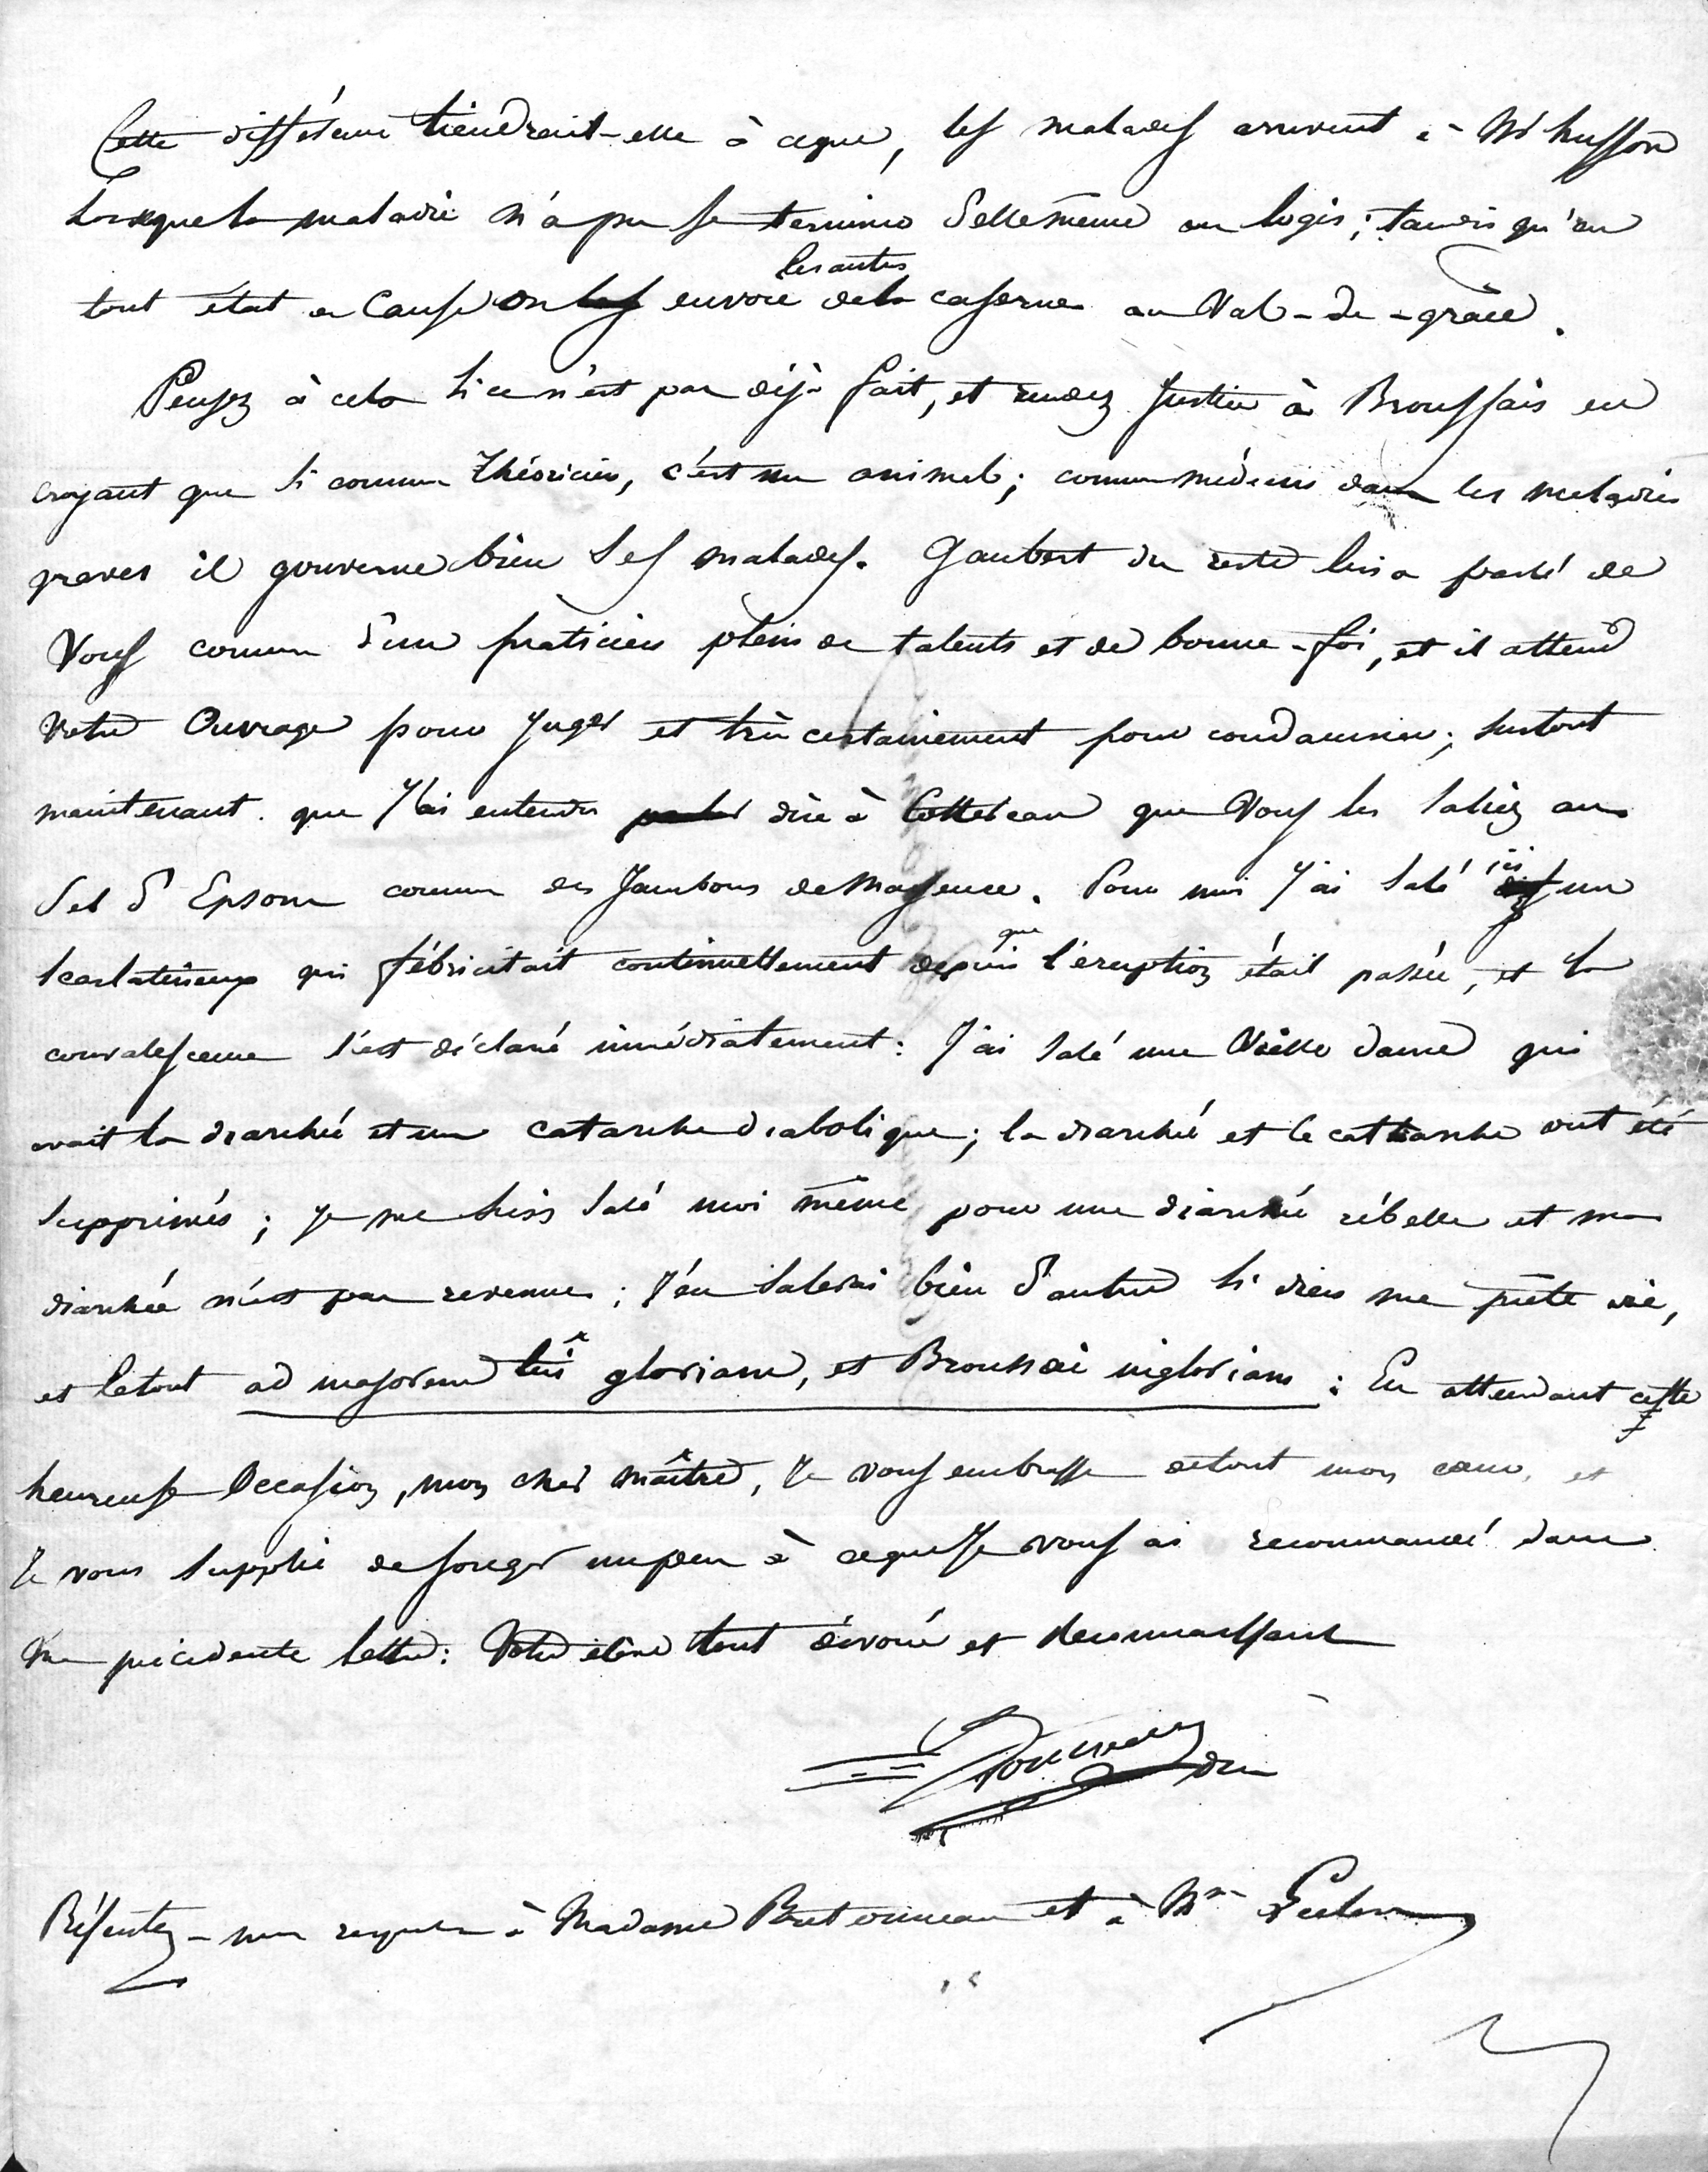 Cette différence tiendrait-elle à ceque, les malades arrivent à Mr husson
Lorsque la maladie n'a pu se terminer d'elle même au logis; tandis qu'en
les autres
tout état de Cause on les envoie de la caserne au Val-de-grâce.
Pensez à cela si ce n'est pas déjà fait, et rendez Justice à Broussais en
croyant que si comme théoricien, c'est un animal; comme médecin dans les maladies
graves il gouverne bien ses malades. Gaubert du reste lui a parlé de
Vous comme d'un praticien plein de talents et de bonne-foi, et il attend
Votre Ouvrage pour Juger et très certainement pour condamner; surtout
maintenant que J'ai entendu parler dire à Cottereau que Vous les saliez au
Sel d'Epsom comme des Jambons de Mayence. Pour moi J'ai salé ici un
que
scarlatineux qui fébricitait continuellement depuis l'éruption était passée, et la
convalescence s'est déclaré immédiatement: J'ai salé une Vieille dame qui
avait la diarrhée et un catarrhe diabolique; la diarrhée et le catharrhe ont été
supprimés; je me suis salé moi même pour une diarrhée rébelle et ma
diarrhée n'est pas revenue; J'en salerai bien d'autres si dieu me prête vie,
et le tout ad majorem tui gloriam, et Broussai ingloriam: En attendant cette
heureuse Occasion, mon cher maître, Je vous embrasse de tout mon cœur, et
Je vous supplie de songer un peu à ceque Je vous ai recommandé dans
ma précédente lettre: Votre élève tout dévoué et Reconnaissant
Trousseau dm
Présentez-mes respects à Madame Bretonneau et à Mr Leclerc